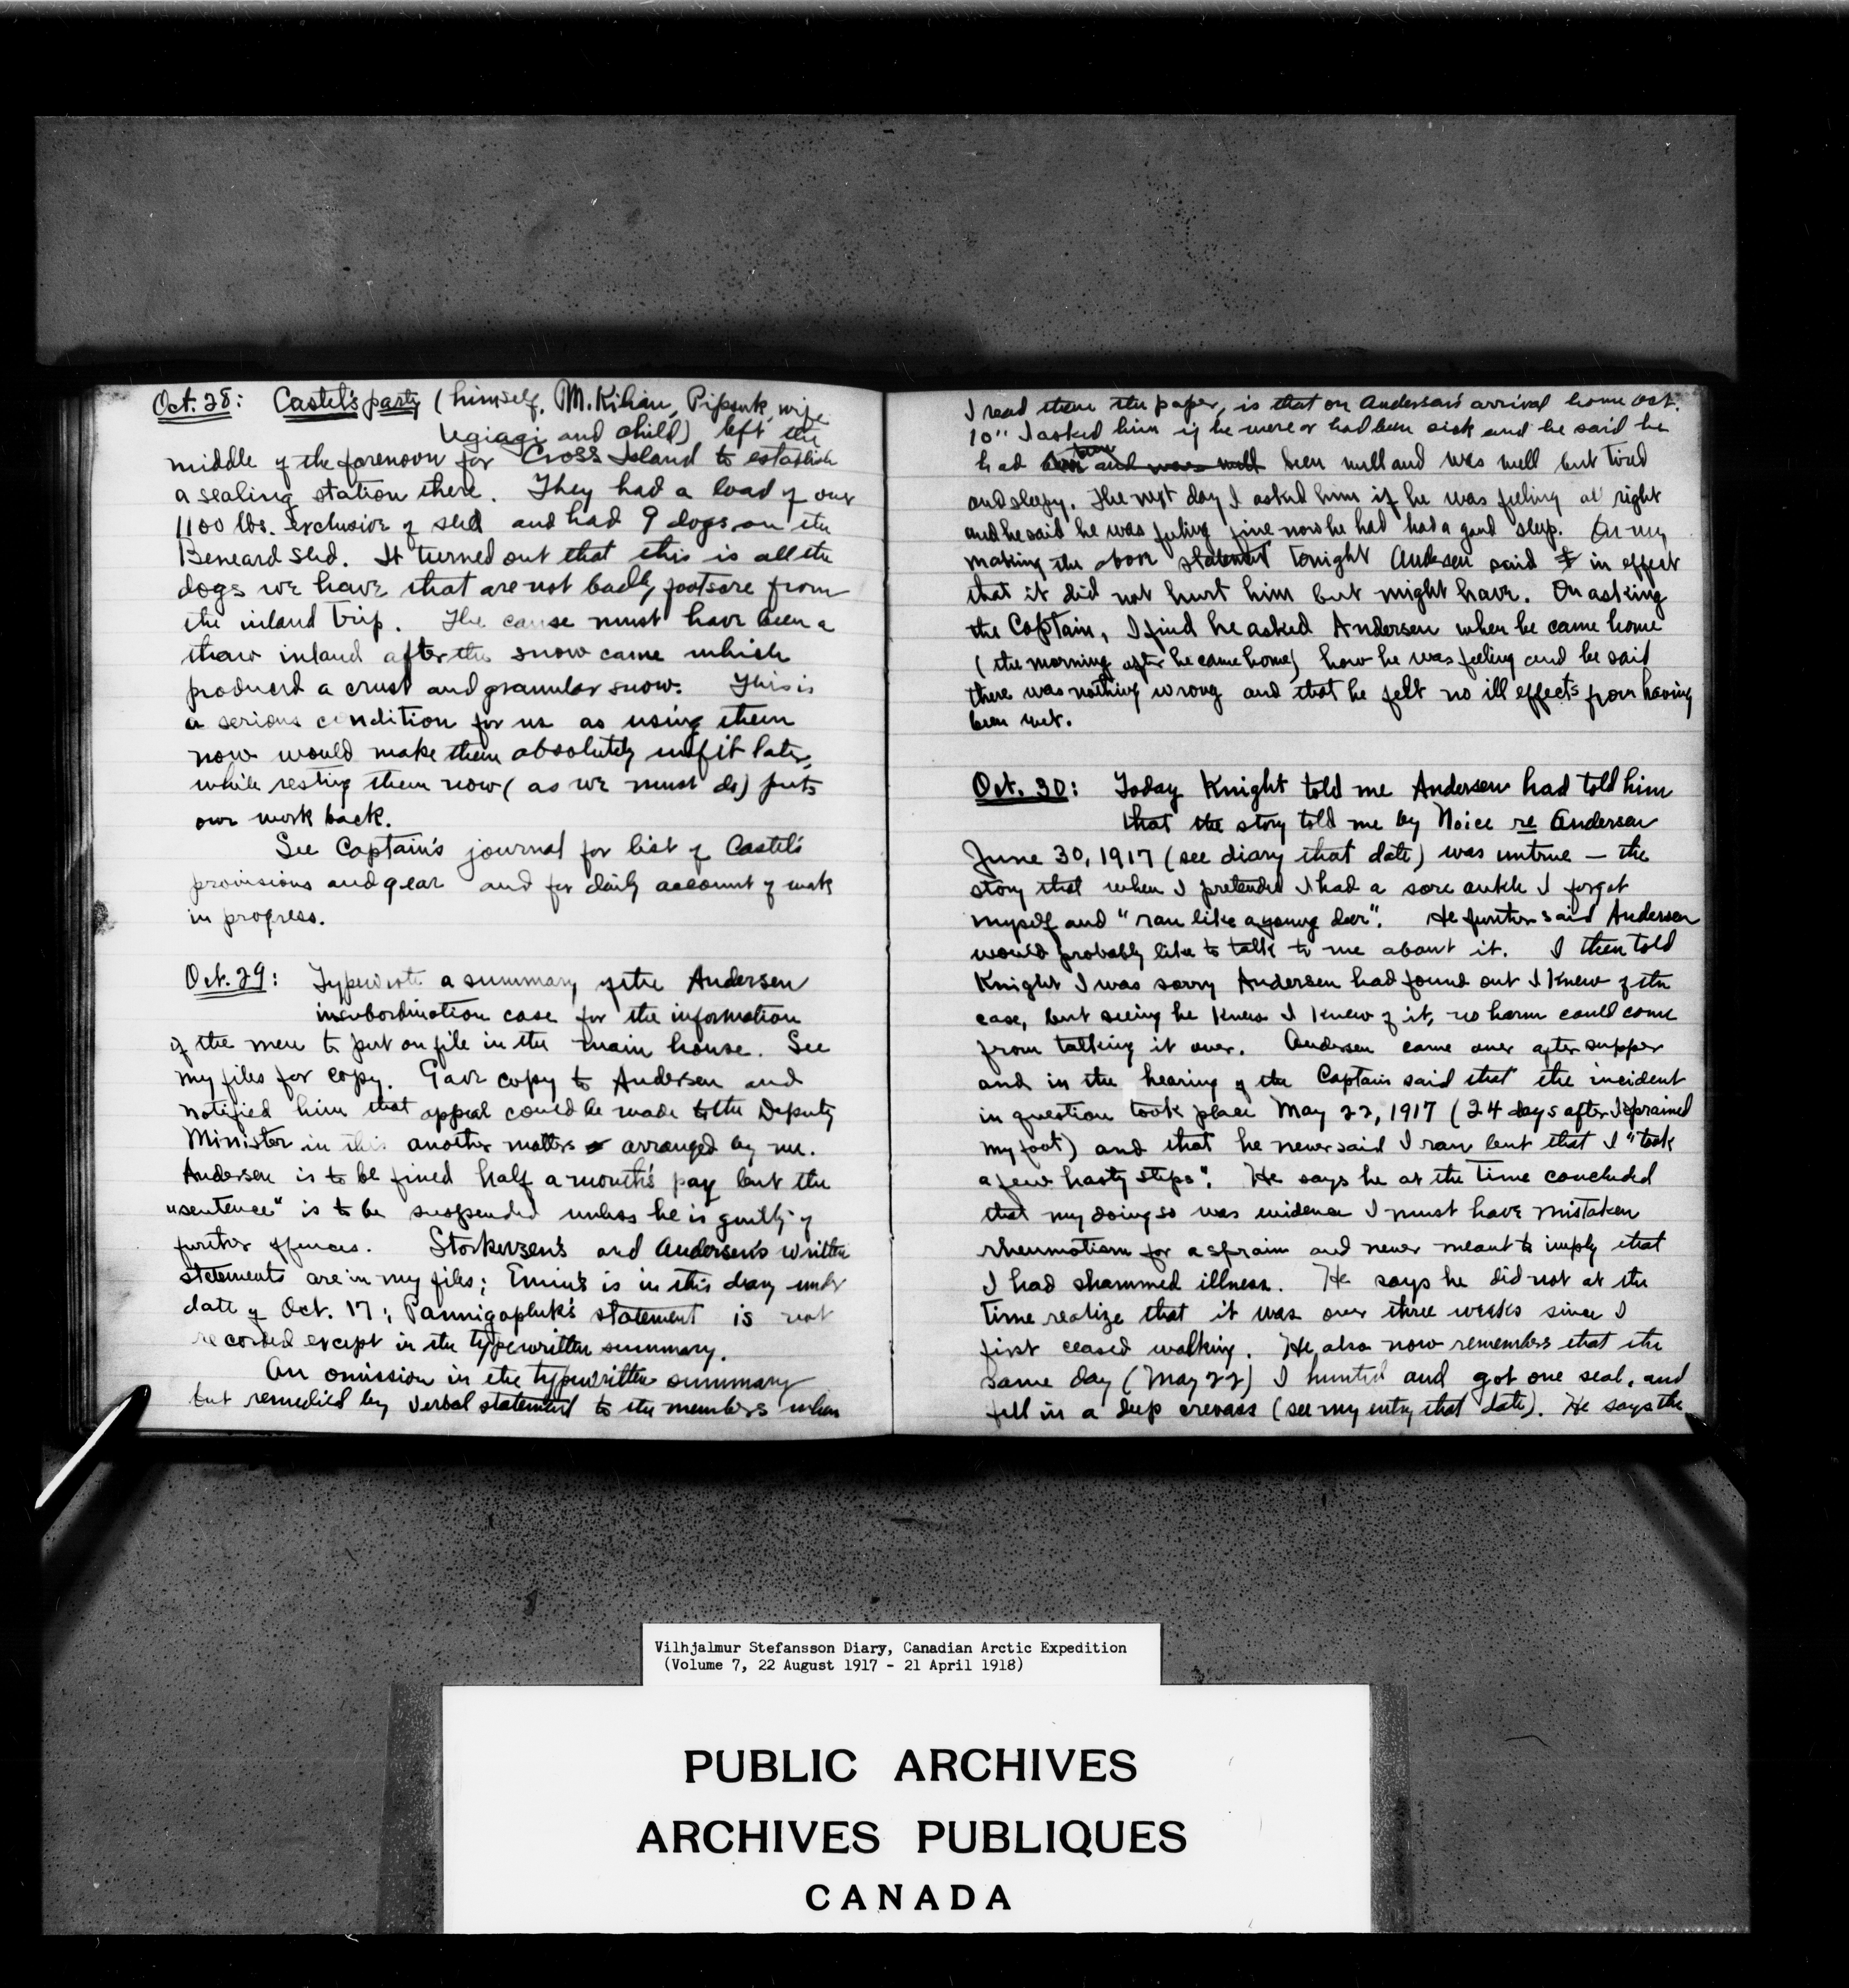 Oct. 28: Castel's party (himself, M. Kilian, Pipsuk, wife
Ugiagi and child) left the
middle of the forenoon for Cross Island to establish
a sealing station there. They had a load of over
1100 lbs. exclusive of sled and had 9 dogs on the
Beneard sled. It turned out that this is all the
dogs we have that are not badly footsore from
the inland trip. The cause must have been a
thaw inland after the snow came which
produced a crust and granular snow. This is
a serious condition for us as using them
now would make them absolutely unfit later,
while resting them now (as we must do) puts
our work back.
See Captain's journal for list of Castel's
provisions and gear and for daily account of work
in progress.
Oct. 29: Typewrote a summary of the Andersen
insubordination case for the information
of the men to put on file in the main house. See
my files for copy. Gave copy to Andersen and
notified him that appeal could be made to the Deputy
Minister in this another matters arranged by me.
Andersen is to be fined half a month's pay but the
"sentence" is to be suspended unless he is guilty of
further offences. Storkersen's and Andersen's written
statements are in my files; Emiu's is in this diary under
date of Oct. 17; Pannigapluk's statement is not
recorded except in the typewritten summary.
An omission in the typewritten summary
but remedied by verbal statement to the members when
I read them the paper, is that on Andersen's arrival home Oct.
10" I asked him if he were or had been sick and he said he
had been and was well been well and was well but tired
and sleepy. The next day I asked him if he was feeling all right
and he said he was feeling fine now he had had a good sleep. On my
making the above statement tonight Andersen said in effect
that it did not hurt him but might have. On asking
the Captain, I find he asked Andersen when he came home
(the morning after he came home) how he was feeling and he said
there was nothing wrong and that he felt no ill effects from having
been wet.
Oct. 30: Today Knight told me Andersen had told him
that the story told me by Noice re Andersen
June 30, 1917 (see diary that date) was untrue — the
story that when I pretended I had a sore ankle I forgot
myself and "ran like a young deer". He further said Andersen
would probably like to talk to me about it. I then told
Knight I was sorry Andersen had found out I knew of the
case, but seeing he knew I knew of it, no harm could come
from talking it over. Andersen came over after supper
and in the hearing of the Captain said that the incident
in question took place May 22, 1917 (24 days after I sprained
my foot) and that he never said I ran but that I "took
a few hasty steps". He says he at the time concluded
that my doing so was evidence I must have mistaken
rheumatism for a sprain and never meant to imply that
I had shammed illness. He says he did not at the
time realize that it was over three weeks since I
first ceased walking. He also now remembers that the
same day (May 22) I hunted and got one seal, and
fell in a deep crevass (see my entry that date). He says the
Vilhjalmur Stefansson Diary, Canadian Arctic Expedition
(Volume 7, 22 August 1917 - 21 April 1918)
PUBLIC ARCHIVES
ARCHIVES PUBLIQUES
CANADA